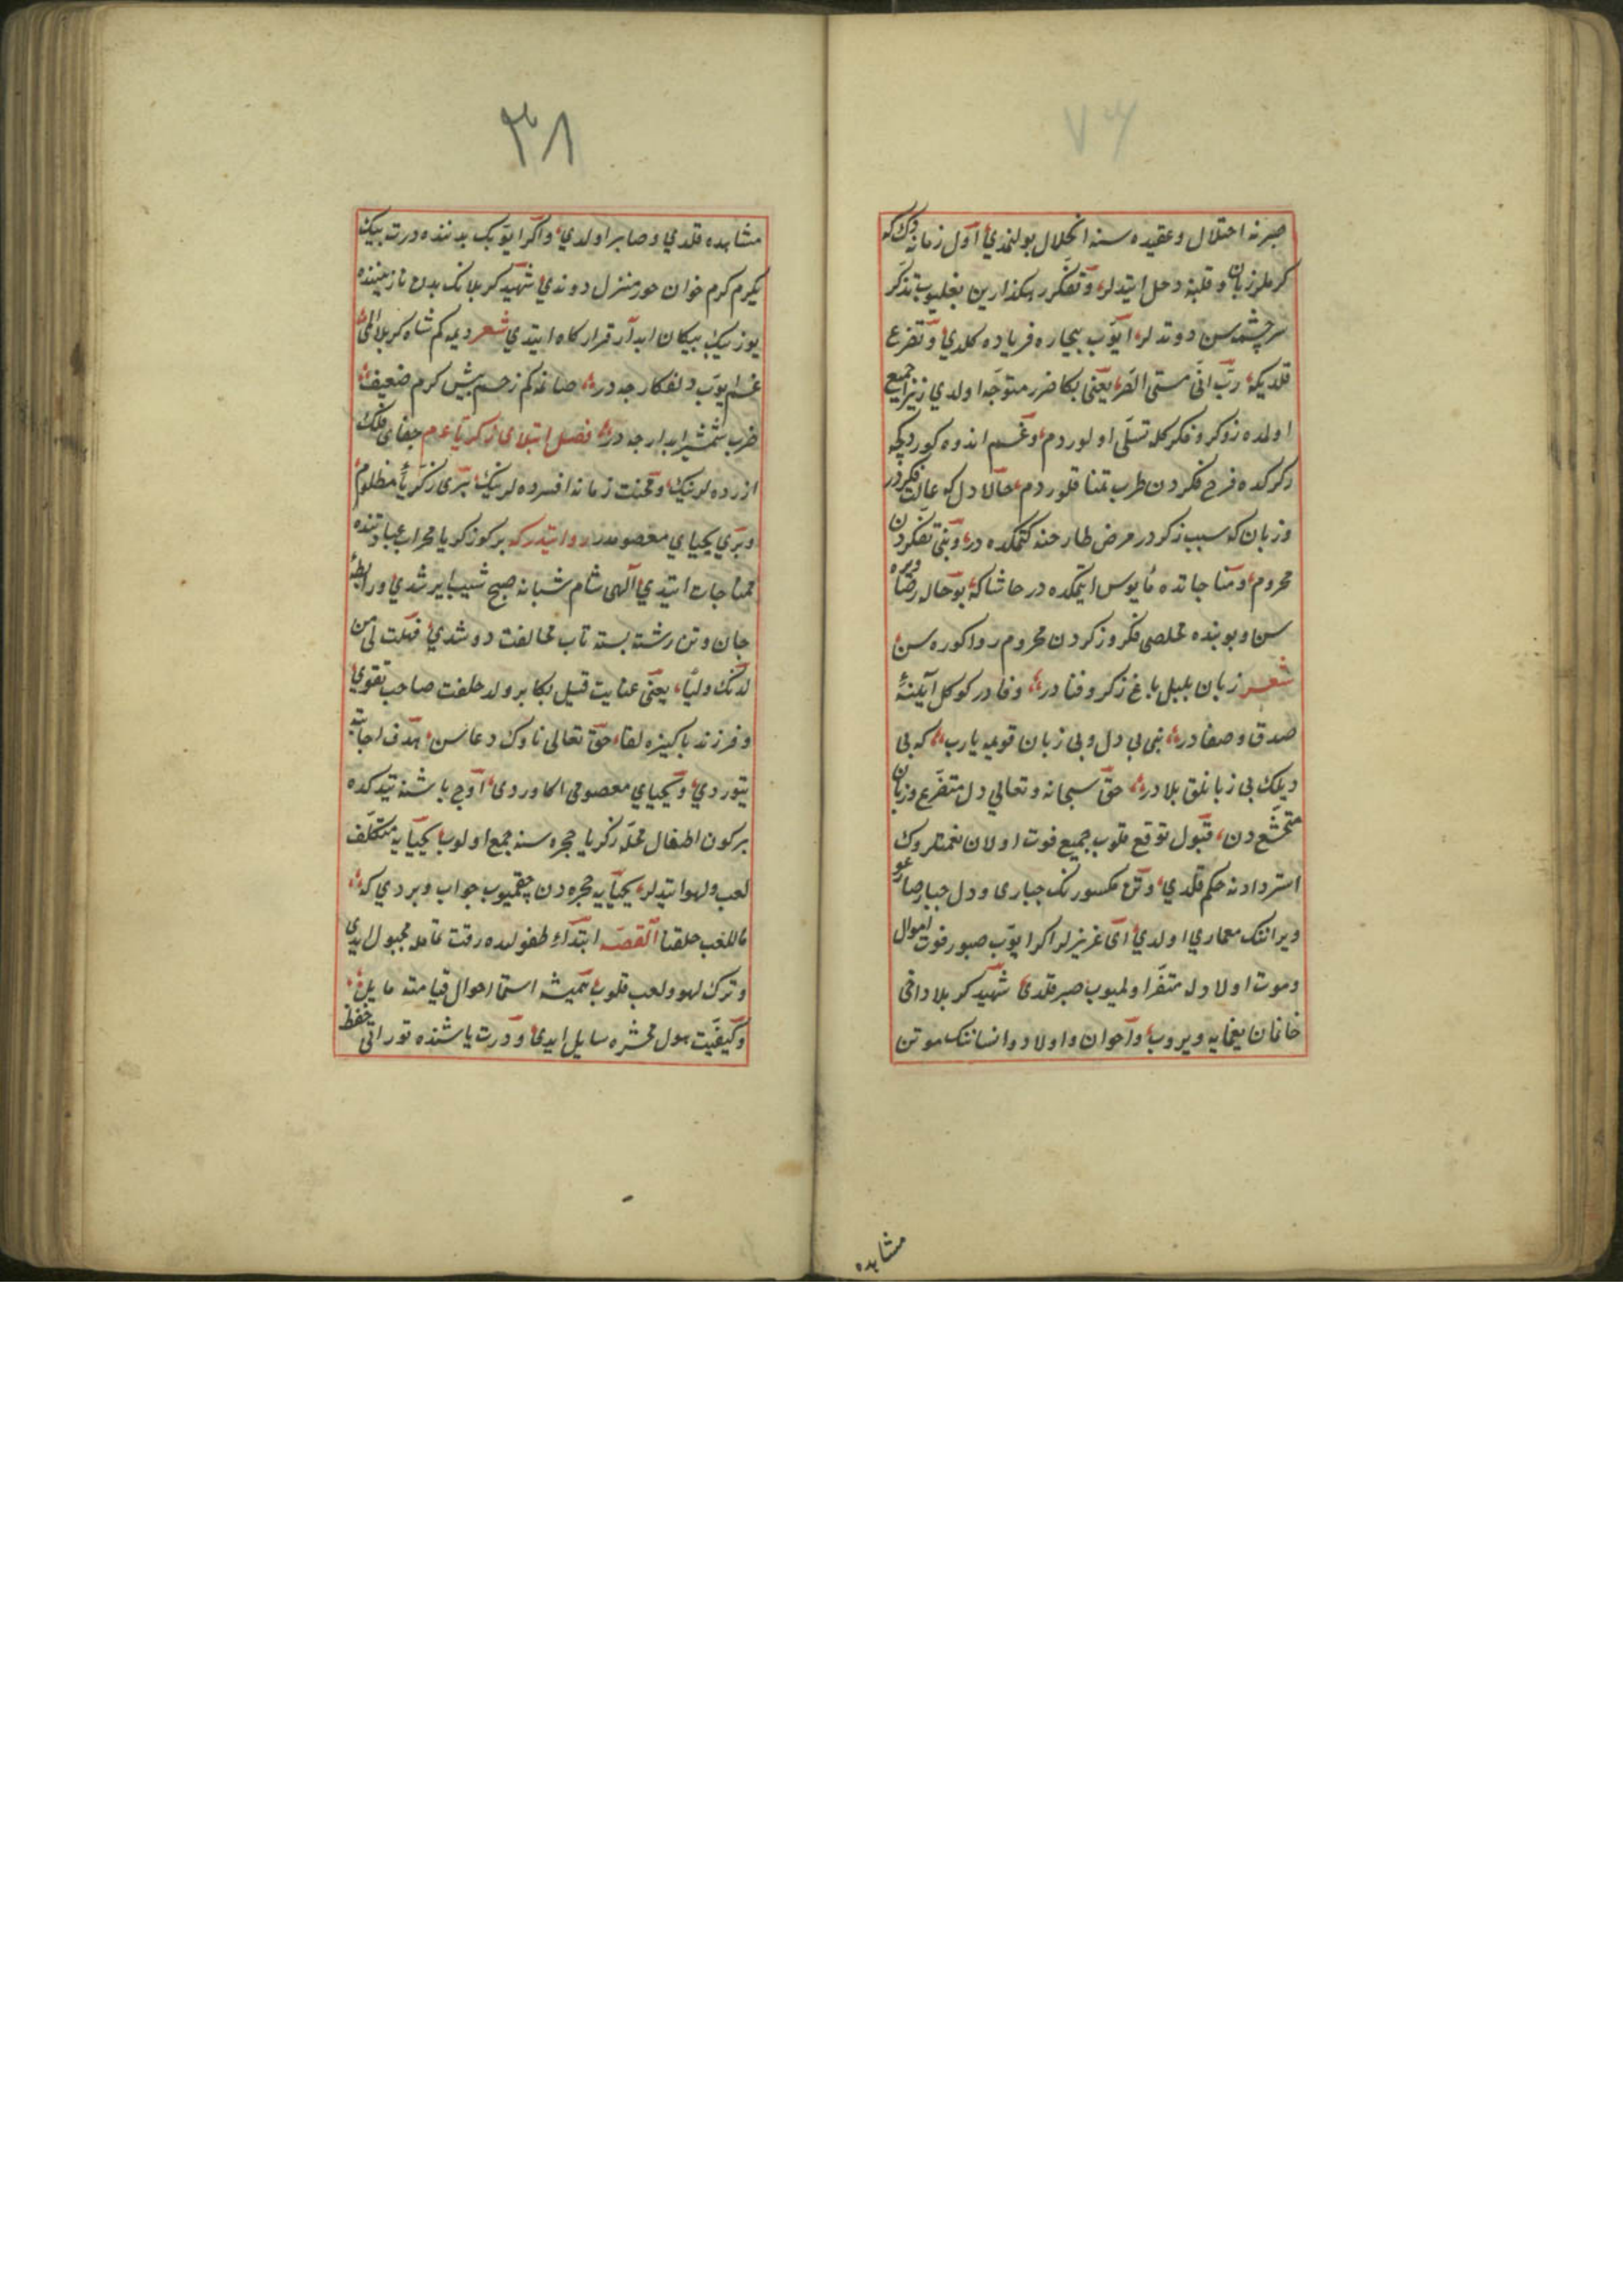 ٧٦
صبرنه اختلال و عقیده سنه انحلال بولنمدی اول زمانه دك كه
كرملر زبان و قلبنه دخل ایتدلر و تفكر رهكذارین بغلیوب تذكر
سرچشمه سن دوتدلر ایوب بیچاره فریاده كلدی و تضرع
قلدیكه رب انی مسنی الضر یعنی بكا ضرر متوجه اولدی زیرا جمیع
اولمده زكر و فكر كله تسلی اولوردم و غم اندوه كوردكچه
ذكر كده فرح فكردن طرب تمنا قلوردم حالا دل كه عالت فكردر
و زبان كه سبب زكردر مرض طارحنه كتمكده در و بنی تفكردن
محروم و مناجاتده مأیوس ایتمكده در حاشاكه بو حاله رضا ویره
سن و بو بنده مخلصی فكر و زكردن محروم روا كوره سن
شعر زبان بلبل باغ زكر و فنادر وفادر كوكل آیلنهٔ
صدق و صفادر بنی بی دل و بی زبان قویمه یارب كه بی
دیلك بی زبانلق بلادر حق سبحانه و تعالی دل متضرع و زبان
متخشع دن قبول توقع قلوب جمیع فوت اولان نعمتلروك
استردادنه حكم قلدی و تن مكسورنك جباری و دل
ویراننك معماری اولدی ای عزیزلر اكر ایوب صبور فوت اموال
و موت اولادله متفرا ولمیوب صبر قلدی شهید كربلا داخی
خانمان یغمایه ویروب و اخوان و اولاد و انسابنك موتن
مشاهده
٣٨
مشاهده قلدی و صابر اولدی و اكر ایوبك بدننده درت بیك
یكرم كرم خوان حور منزل دوندی شهید كربلانك بدن نازنیننده
یوز بیك پیكان ابدار قرار كاه ایتدی شعر دیمه كم شاه كربلا المی
غم ایوب دلفكارجه در صانمه كم زحم بیش كرم ضعیف
ضرب شمشیر ابدارجه در فصل ابتلای زكریا عم جفای فلك
ازرده لرینك و محنت زمانه افسرده لرینك بری زكریأ مظلوم
و بری یحیای معصومدر روایتدركه بر كون زكریا محراب عبادتنده
مناجات ایتدی الهی شام شبانه صبح شیب ایرشدی و رابطهٔ
جان و تن رشته بسته تاب مخالفت دوشدی فهبت لی من
لدنك ولیا یعنی عنایت قیل بكا بر ولد خلفت صاحب تقوی
و فرزند پاكیزه لقا حق تعالی ناوك دعاسن هدف اجابته
یتوردی و یحیای معصومی اكا وردی اوج یاشنه یتدكده
بر كون اطفال محله زكریا حجره سنه جمع اولوب یحیایه متكلف
لعب و لهو ایتدلر یحیایه حجره دن چقمیوب جواب ویردی كه
ما للعب خلقنا القصه ابتداء طفولده رقت مجبول ایدی
و ترك لهو و لعب قلوب همیشه استما احوال قیامته مایل
و كیفیت هول محشره سایل ایدی و درت یاشنده توراتی حفظ